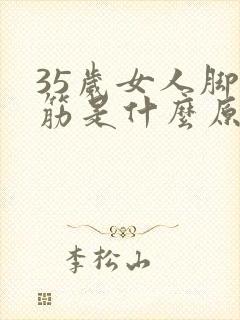 35歲女人脚
筋是什麼原
李松山